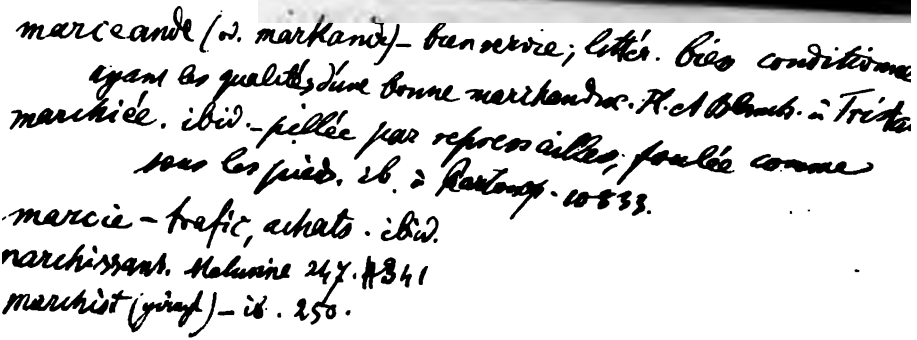 marceande (v. markande) - bien servie; littér. bien conditionné
ayant les qualités d'une bonne marchandise. Fl. et Blanch. à Trista
marchiée. ibid. - pillée par repressailles; foulée comme
sous les pieds. ib. à 10833.
marcie - trafic, achats. ibid.
marchissant. Melusine 247. 341
marchist - ib. 250.